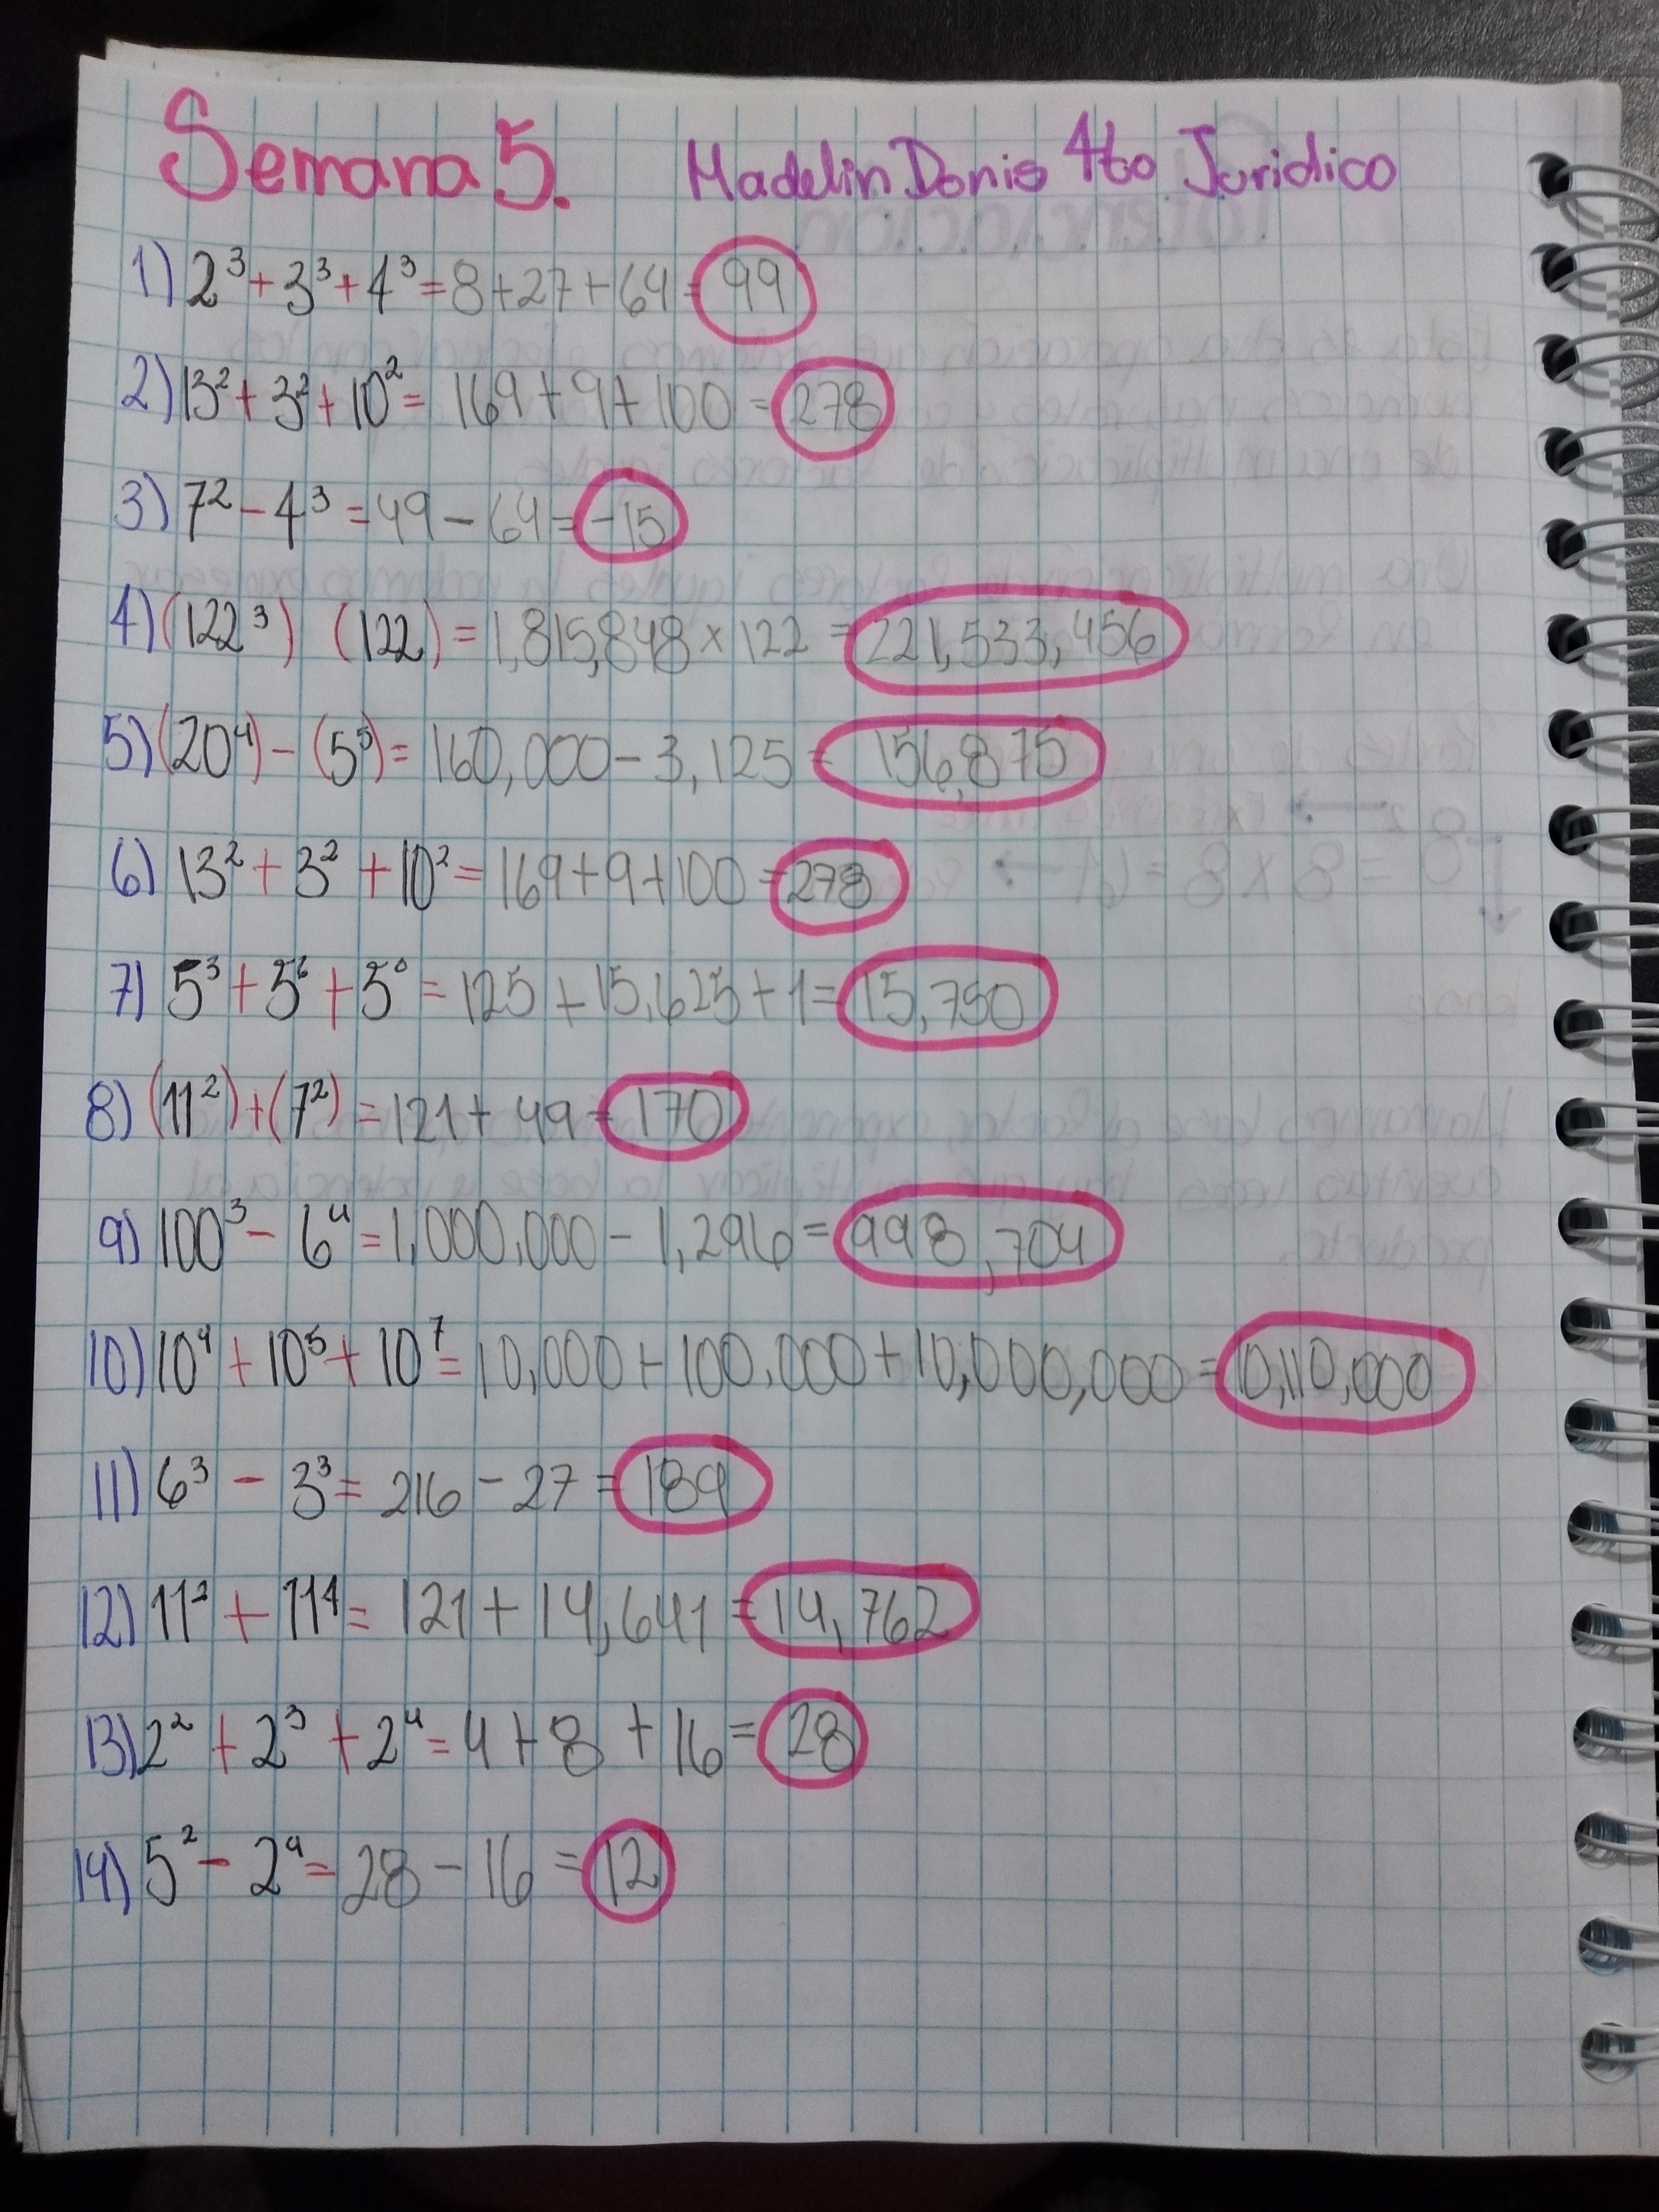 Semana 5. Madelin Donis 4to Juridico
1) 2³ + 3³ + 4³ = 8 + 27 + 64 = 99
2) 13² + 3² + 10² = 169 + 9 + 100 = 278
3) 7² - 4³ = 49 - 64 = -15
4) (122³) (122) = 1,815,848 × 122 = 221,533,456
5) (20⁴) - (5⁵) = 160,000 - 3,125 = 156,875
6) 13² + 3² + 10² = 169 + 9 + 100 = 278
7) 5³ + 5⁶ + 5⁰ = 125 + 15,625 + 1 = 15,750
8) (11²) + (7²) = 121 + 49 = 170
9) 100³ - 6⁴ = 1,000,000 - 1,296 = 998,704
10) 10⁴ + 10⁵ + 10⁷ = 10,000 + 100,000 + 10,000,000 = 10,110,000
11) 6³ - 3³ = 216 - 27 = 189
12) 11² + 11⁴ = 121 + 14,641 = 14,762
13) 2² + 2³ + 2⁴ = 4 + 8 + 16 = 28
14) 5² - 2⁴ = 28 - 16 = 12